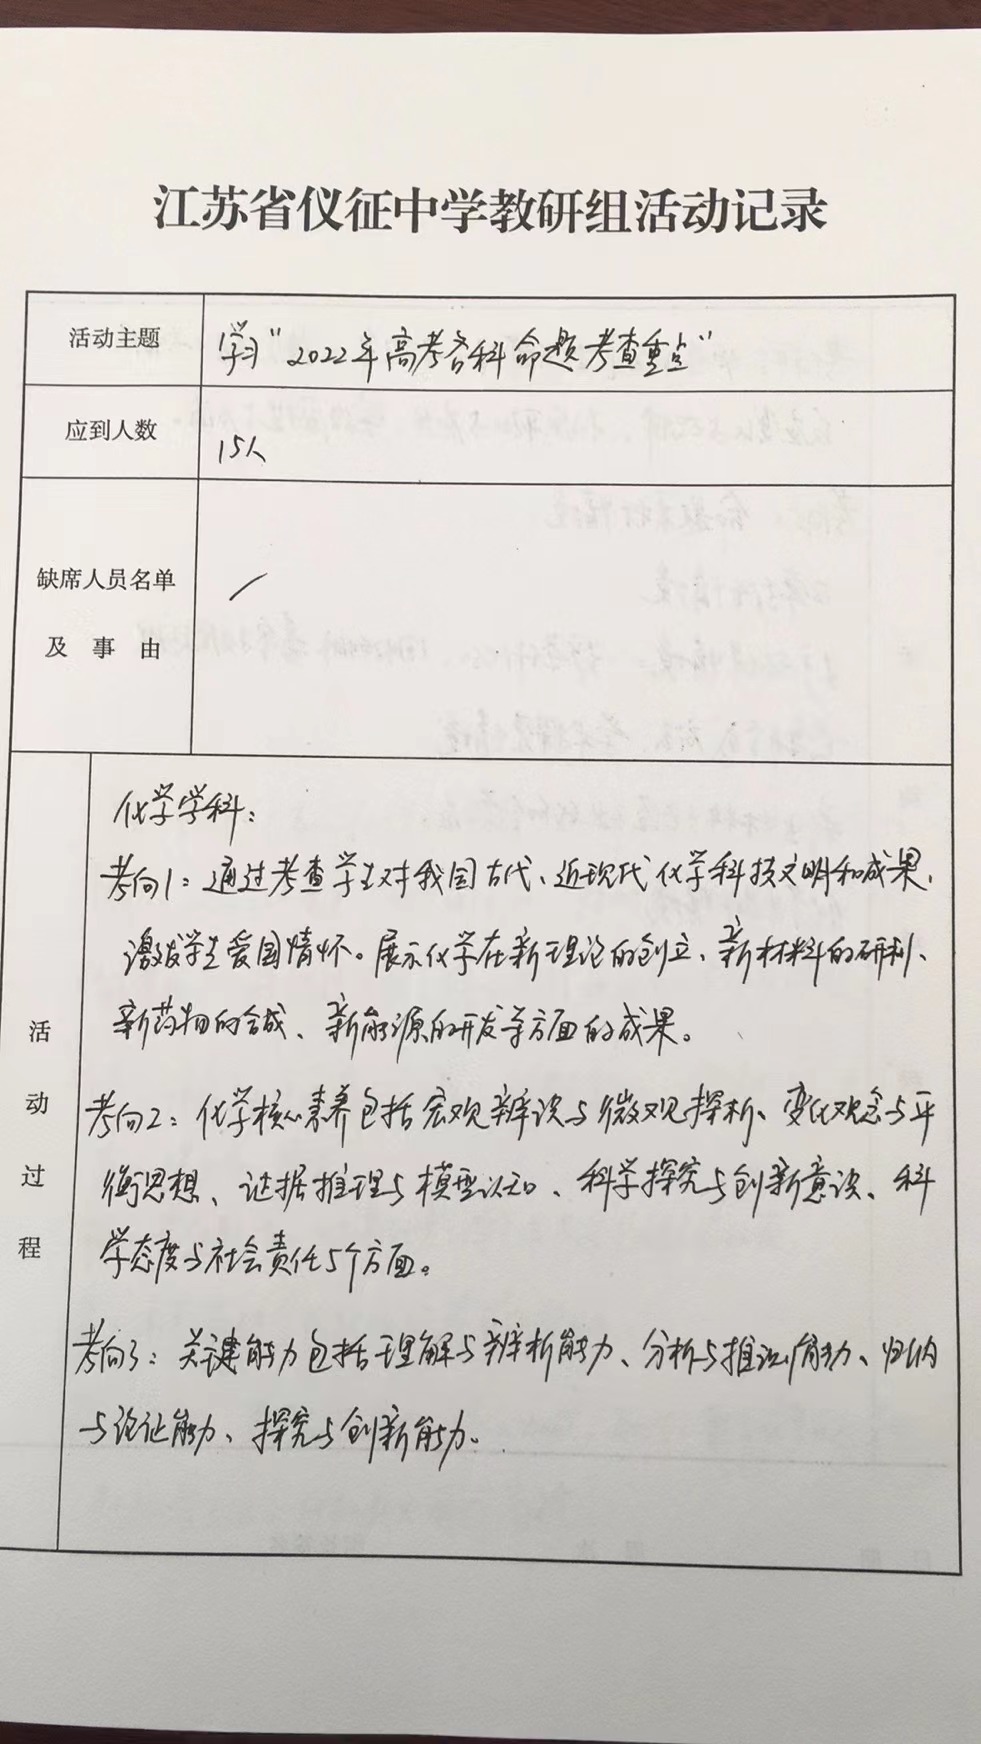 江苏省仪征中学教研组活动记录
活动主题
学习“2022年高考各科命题考查重点”
应到人数
15人
缺席人员名单
及事由
/
活动过程
化学学科：
考向1：通过考查学生对我国古代、近现代化学科技文明和成果，
激发学生爱国情怀。展示化学在新理论的创立、新材料的研制、
新药物的合成、新能源的开发等方面的成果。
考向2：化学核心素养包括宏观辨识与微观探析、变化观念与平
衡思想、证据推理与模型认知、科学探究与创新意识、科
学态度与社会责任5个方面。
考向3：关键能力包括理解与辨析能力、分析与推测能力、归纳
与论证能力、探究与创新能力。